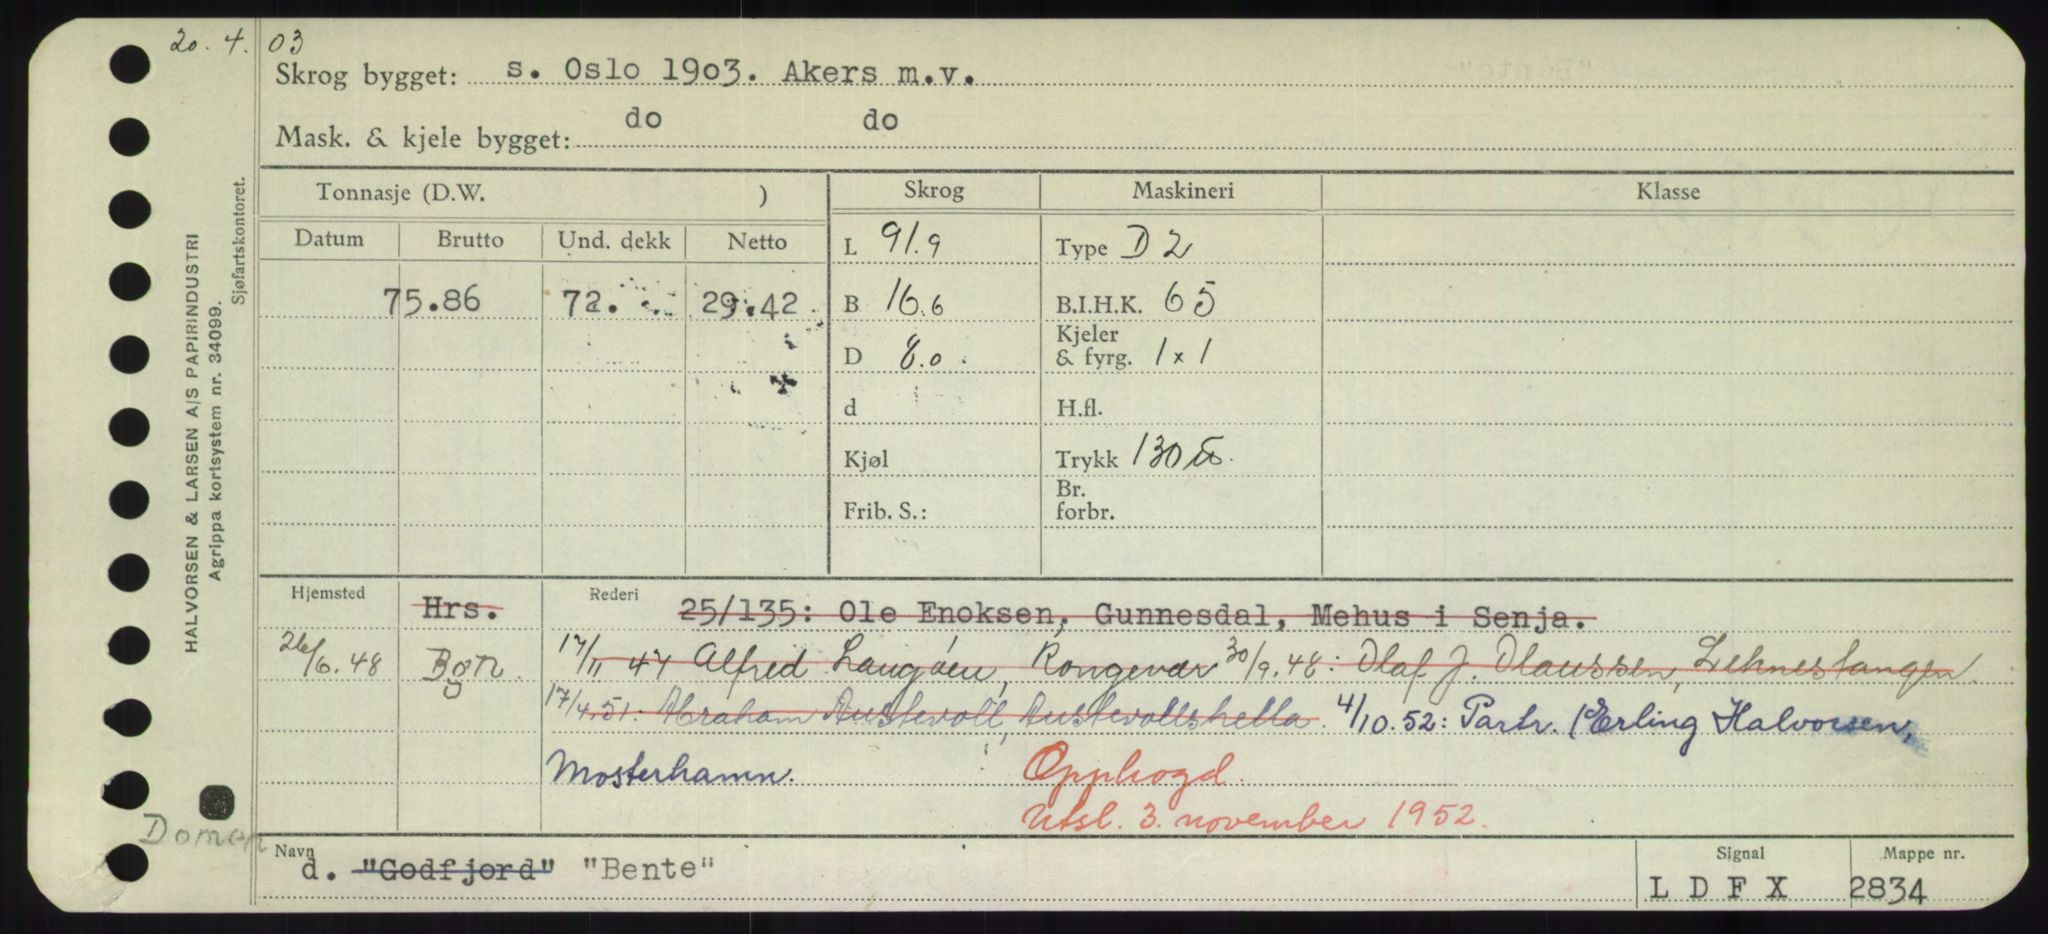 20. 4. 03
Skrog bygget: s. Oslo 1903. Akers m.v.
Mask. & kjele bygget: do do
HALVORSEN & LARSEN A/S PAPIRINDUSTRI
Agrippa kortsystem nr. 34099.
Sjøfartskontoret.
Tonnasje (D.W. ) Skrog Maskineri Klasse
Datum Brutto Und. dekk Netto
L 91.9 Type D 2
75.86 72. 29.42
B 16.6 B.I.H.K. 65
D 8.0 Kjeler & fyrg. 1 x 1
d H.fl.
Kjøl Trykk 130
Frib. S.: Br. forbr.
Hjemsted Hrs. Rederi 25/135: Ole Enoksen, Gunnesdal, Mehus i Senja.
26/6.48 Bgn. 17/11 47 Alfred Laugøen, Rongevær 30/9.48: Olaf J. Olaussen, Leknestangen.
17/4.51: Abraham Austevoll, Austevollshella. 4/10.52: Partr. (Erling Halvorsen,
Mosterhamn. Opphogd.
Utsl. 3. november 1952.
Domen
Navn d. "Godfjord" "Bente"
Signal L D F X
Mappe nr. 2834